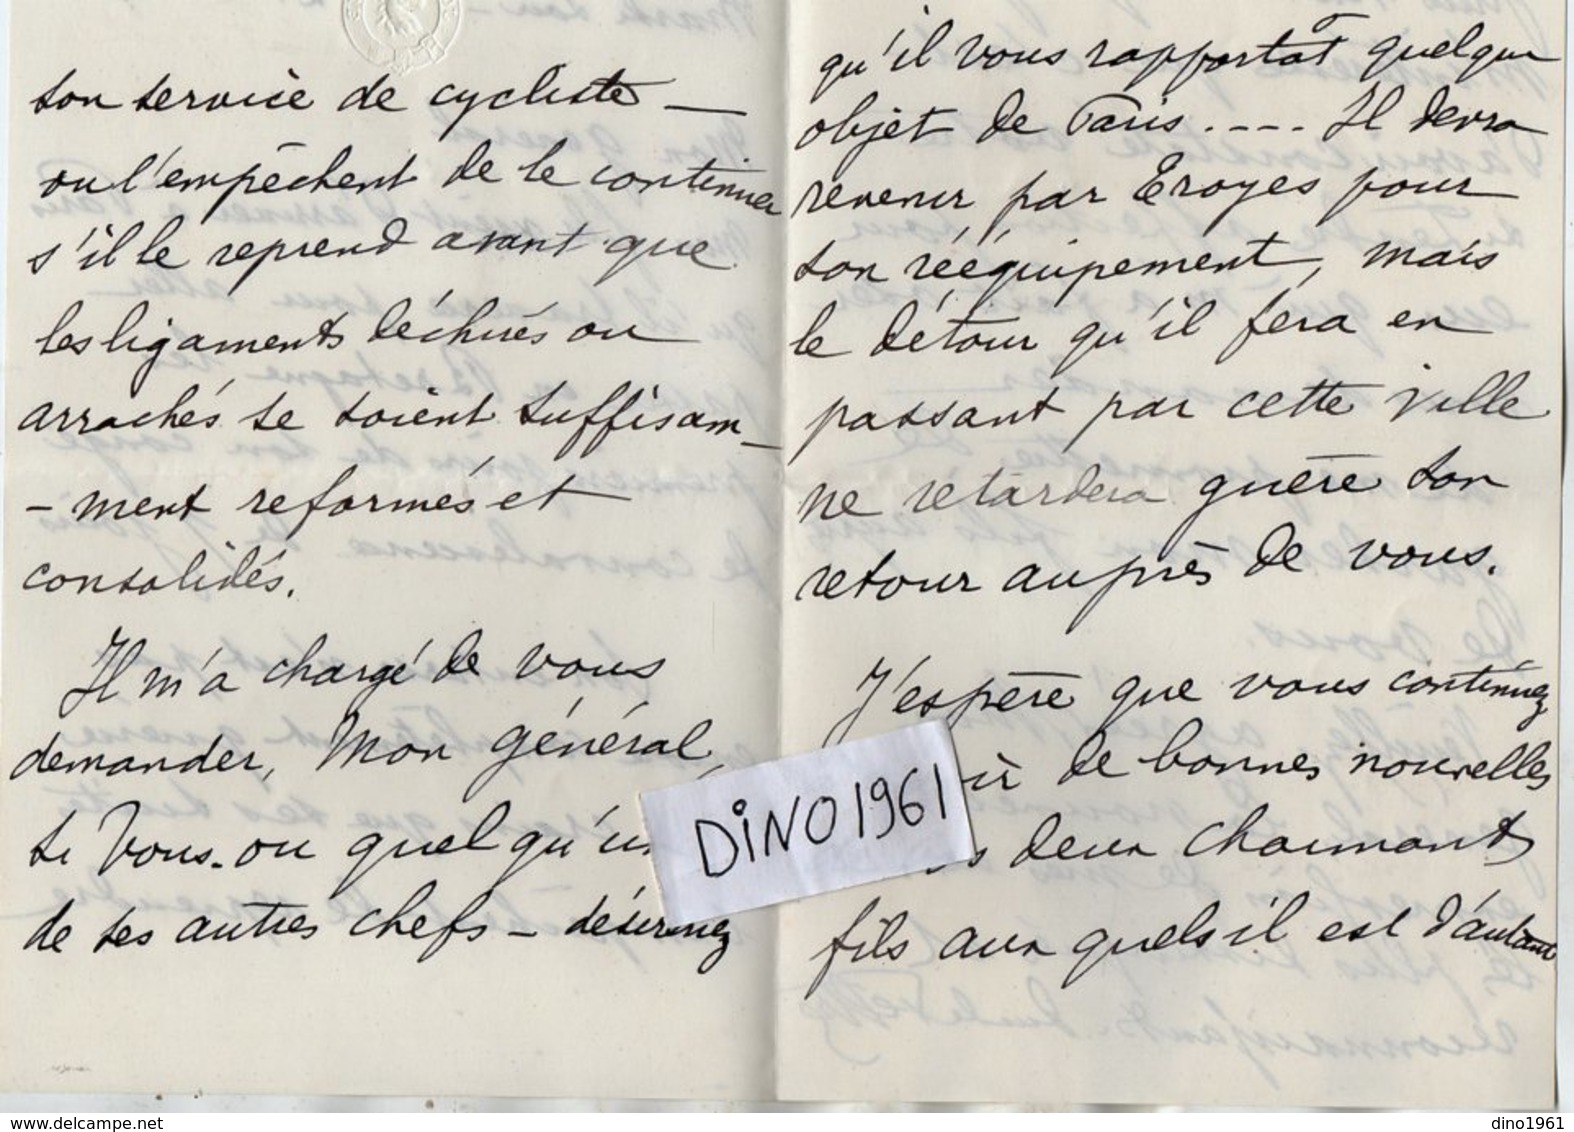 son service de cycliste —
ou l'empêchent de le continuer
s'il le reprend avant que
les ligaments déchirés ou
arrachés se soient suffisam-
-ment reformés et
consolidés.
Il m'a chargé de vous
demander, Mon général,
si Vous. ou quelqu'un
de ses autres chefs — désirerez
qu'il vous rapportât quelque
objet de Paris . - - - Il devra
revenir par Troyes pour
son rééquipement, mais
le détour qu'il fera en
passant par cette ville
ne retardera guère son
retour auprès de vous.
J'espère que vous continuez
de bonnes nouvelles
deux charmants
fils aux quels il est d'autant
DiNO1961
delcampe.net
dino1961